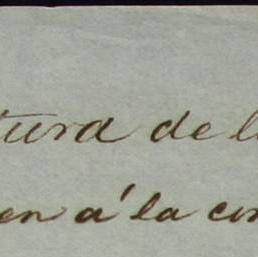 tura de l
en á la con